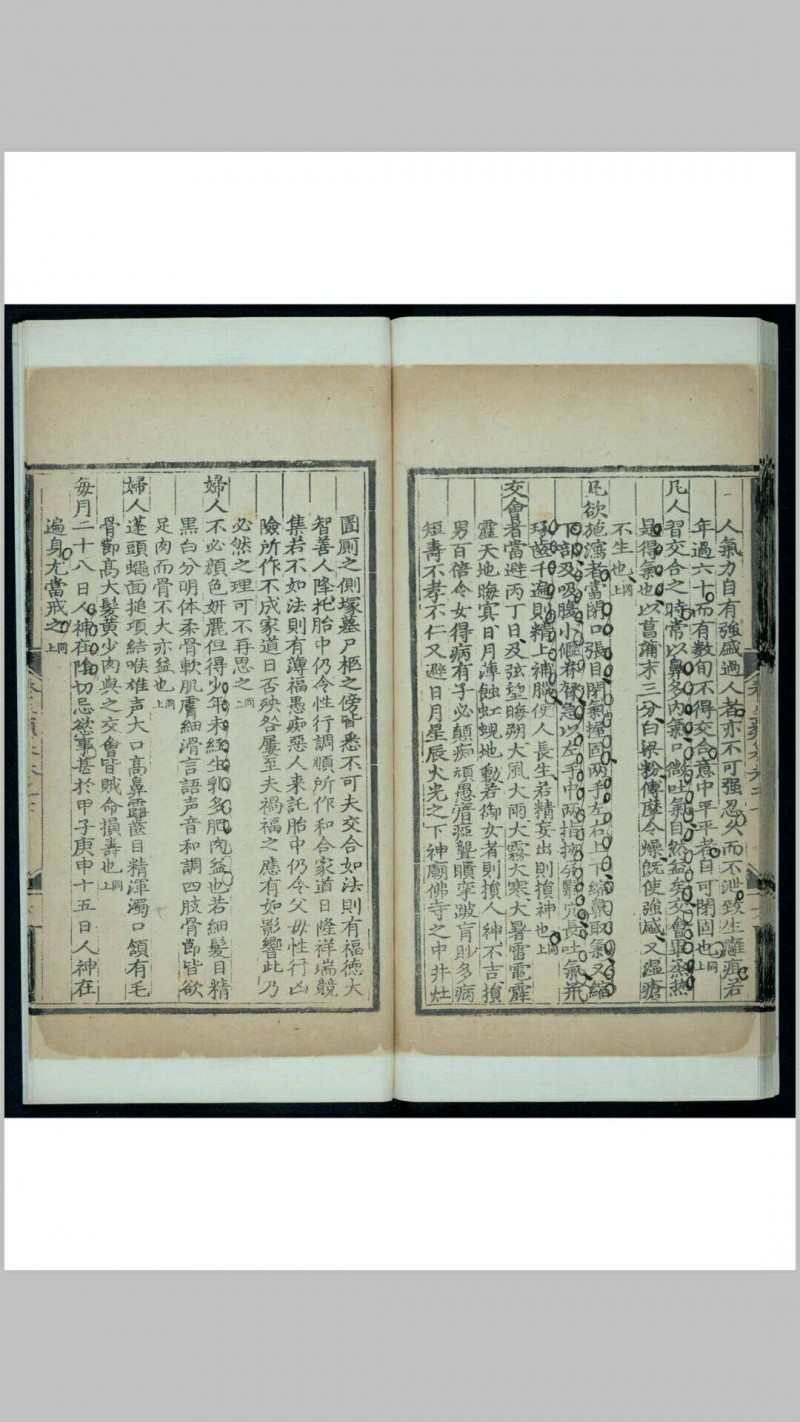 人氣力自有強盛過人者亦不可强忍久而不泄致生癰疽若
年過六十而有數旬不得交合意中平平者自可閉固也同上
凡人習交合之時常以鼻多內氣口微吐氣自然益矣交會畢蒸熱
是得氣也以菖蒲末三分白粱粉傅摩令燥旣使強盛又濕瘡
不生也同上
凡欲施瀉者當閉口張目閉氣握固兩手左右上下縮鼻取氣又縮
下部及吸腹小偃脊膂急以左手中兩指抑屏翳穴長吐氣并
琢齒千遍則精上補腦使人長生若精妄出則損神也同上
交會者當避丙丁日及弦望晦朔大風大雨大霧大寒大暑雷電霹
靂天地晦冥日月薄蝕虹蜺地動若御女者則損人神不吉損
男百倍令女得病有子必顛痴頑愚瘖瘂聾聵攣跛盲眇多病
短壽不孝不仁又避日月星辰火光之下神廟佛寺之中井灶
圊厠之側塚墓尸柩之傍皆悉不可夫交合如法則有福德大
智善人降托胎中仍令性行調順所作和合家道日隆祥瑞競
集若不如法則有薄福愚痴惡人来託胎中仍令父母性行凶
險所作不成家道日否殃咎屢至夫禍福之應有如影響此乃
必然之理可不再思之同上
婦人不必顔色妍麗但得少年未經生乳多肥肉益也若細髮目精
黑白分明体柔骨軟肌膚細滑言語声音和調四肢骨節皆欲
足肉而骨不大亦益也同上
婦人蓬頭蠅面搥項結喉雄声大口高鼻露齒目精渾濁口頷有毛
骨節高大髮黄少肉與之交會皆賊命損壽也同上
每月二十八日人神在陰切忌慾事甚於甲子庚申十五日人神在
遍身尤當戒之同上